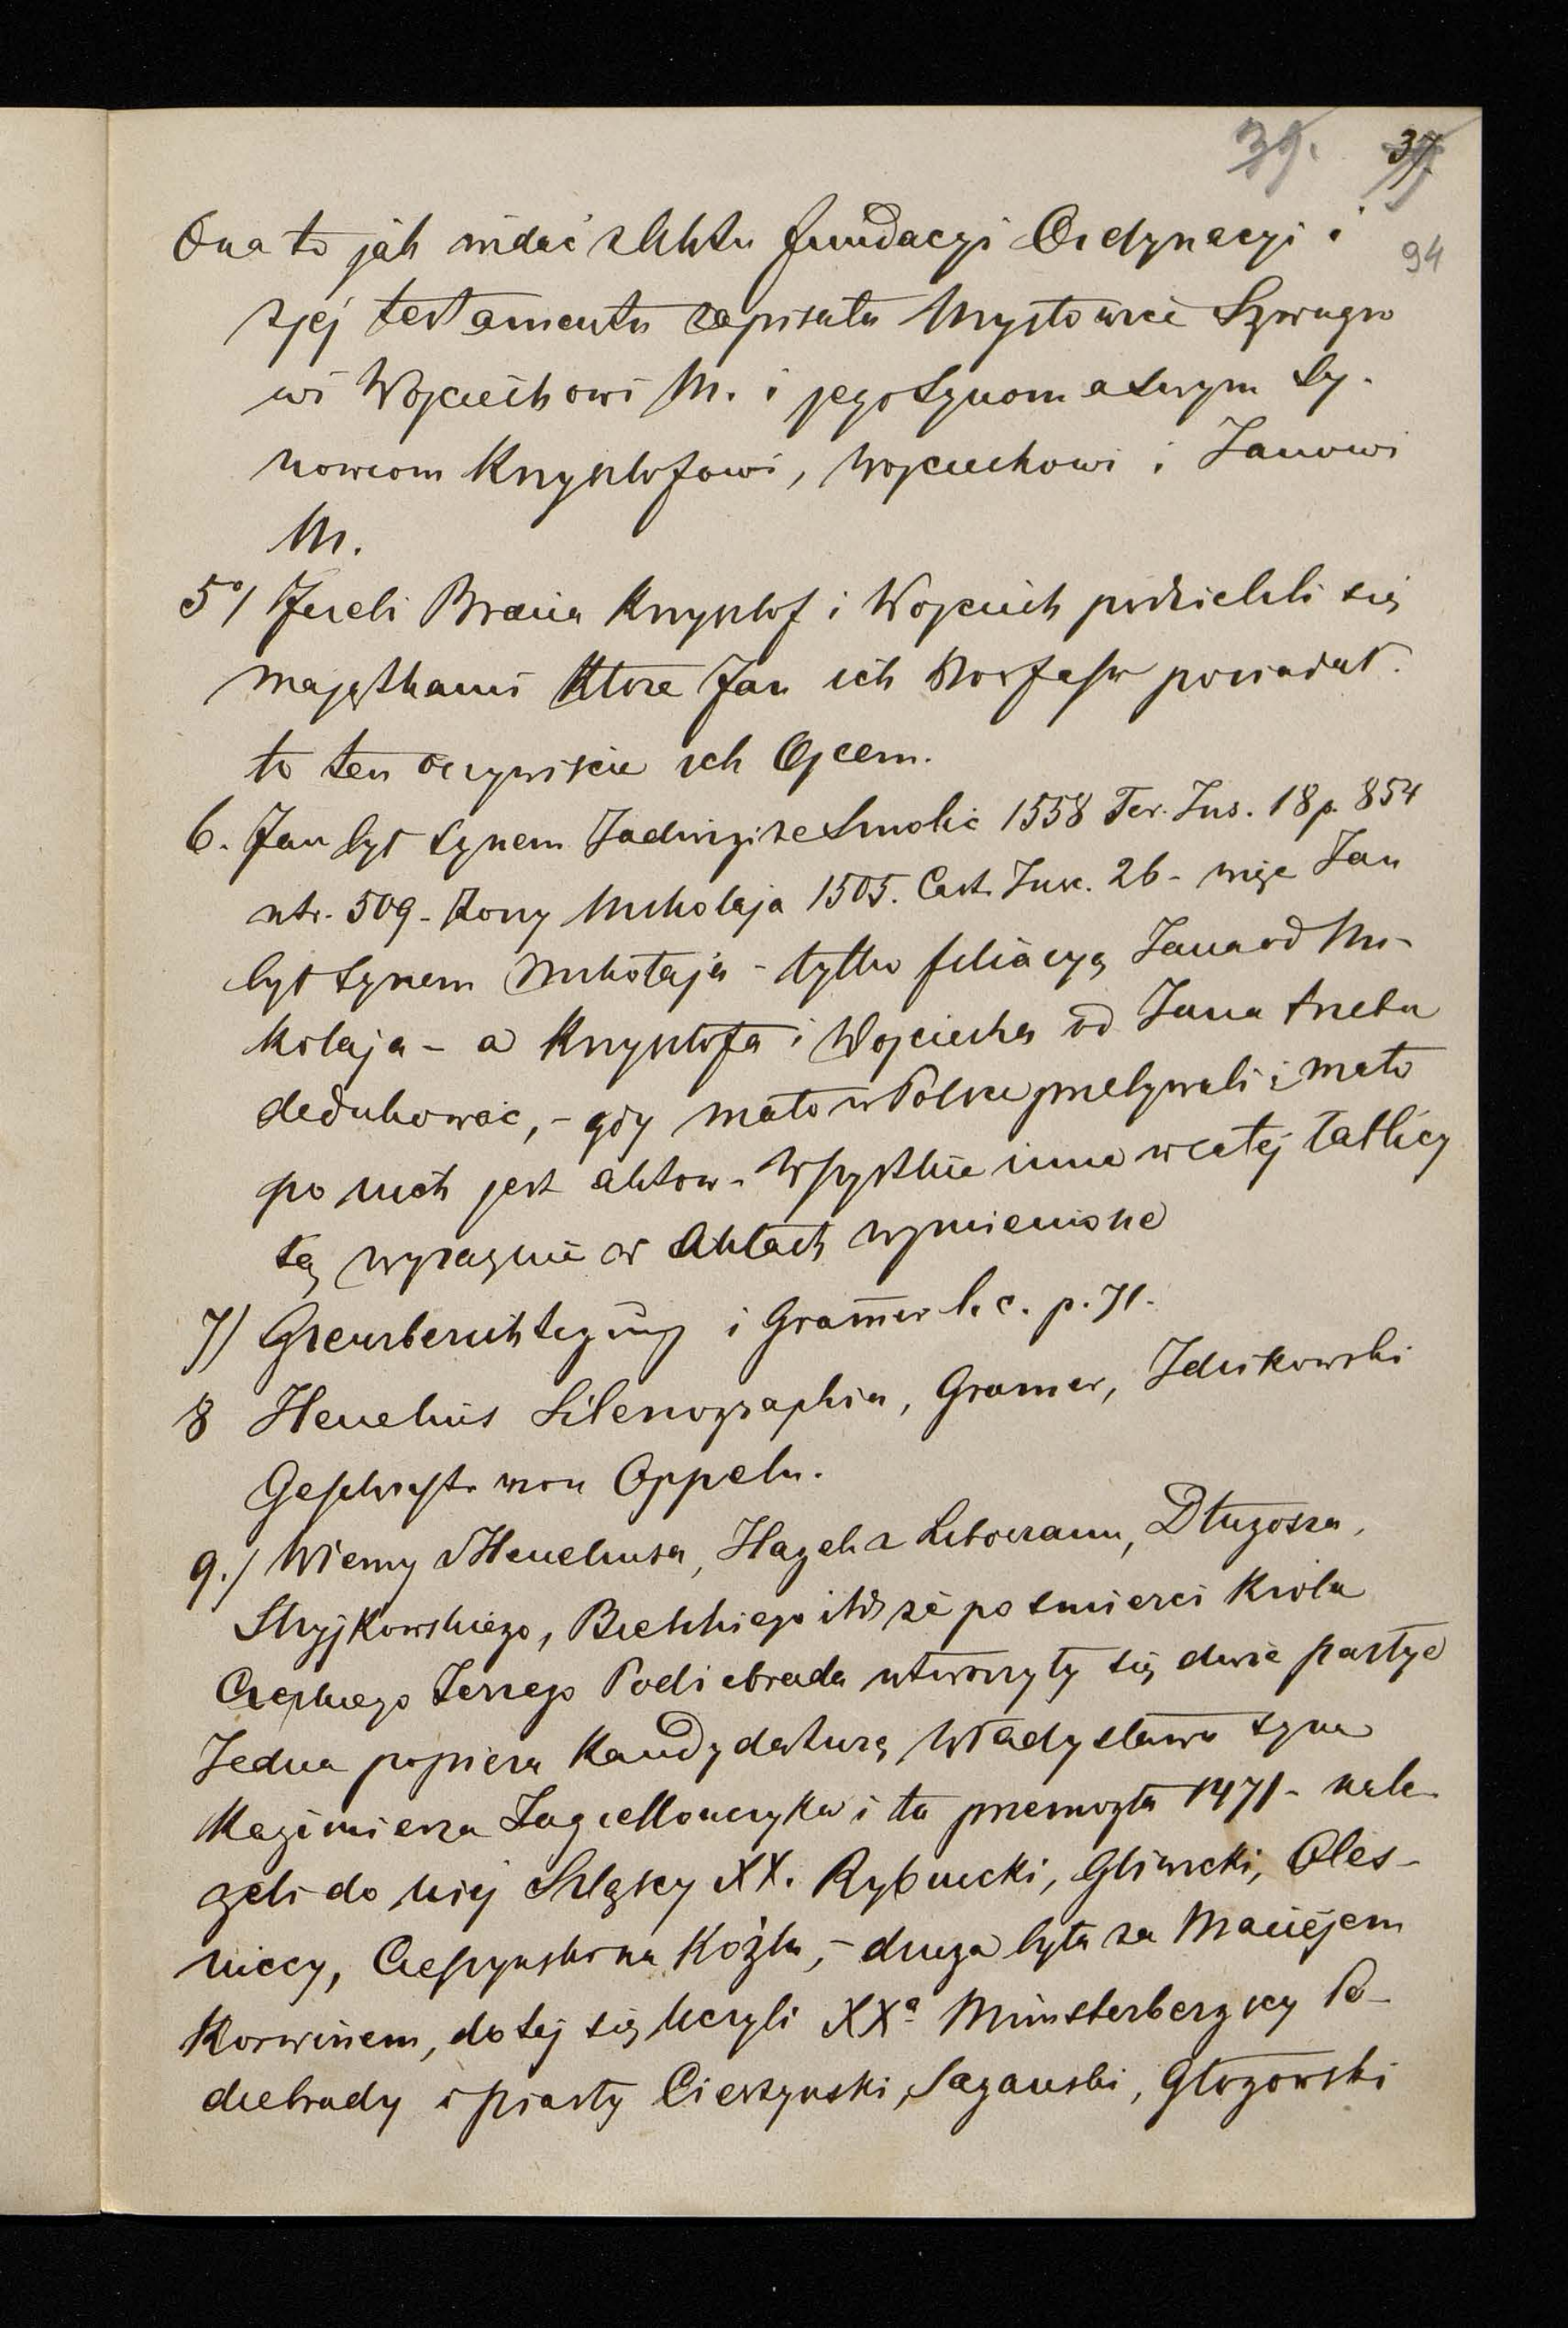 39. 37.
94
Ona to jak widać z Aktu fundacyi Ordynacyi i
z jej testamentu zapisała Mysłowice Szwagro
wi Wojciechowi M. i jego Synom a Swym Sy-
nowcom Krzysztofowi, Wojciechowi i Janowi
M.
5°/ Jeżeli Bracia Krzysztof i Wojciech podzielili się
majątkami które Jan ich posiadał.
to ten oczywiście ich Ojcem.
6. Jan był Synem Jadwigi ze Smolic 1558 Ter. Ins. 18 p. 854
ntr. 509 - Żony Mikołaja 1505. Cast. Insc. 26 - więc Jan
był Synem Mikołaja - tylko filiacyą Jana od Mi-
kołaja - a Krzysztofa i Wojciecha od Jana trzeba
dedukować, - gdy mało w Polsce przebywali i mało
po nich jest aktow - Wszystkie inne w całej tablicy
są wyraznie w Aktach wymienione
7) Grenzberichtigung i Gramer l. c. p. 71.
8 Henelius Silesiographia, Gramer, Idzikowski
Geschichte von Oppeln.
9./ Wiemy z Heneliusa, Hagek z Liboczanu, Długosza,
Stryjkowskiego, Bielskiego itd że po smierci Króla
Czeskiego Jerzego Podiebrada utworzyły się dwie partye
Jedna popiera Kandydaturę Władysława syna
Kazimierza Jagiellończyka i ta przemogła 1471 - nale-
żeli do niej Szląscy XX. Rybnicki, Gliwicki, Oles-
niccy, na Koźlu, - druga była za Maciejem
Korwinem, do tej się liczyli XXª Münsterbergscy Po-
diebrady i Piasty Cieszynski, Saganski, Głogowski